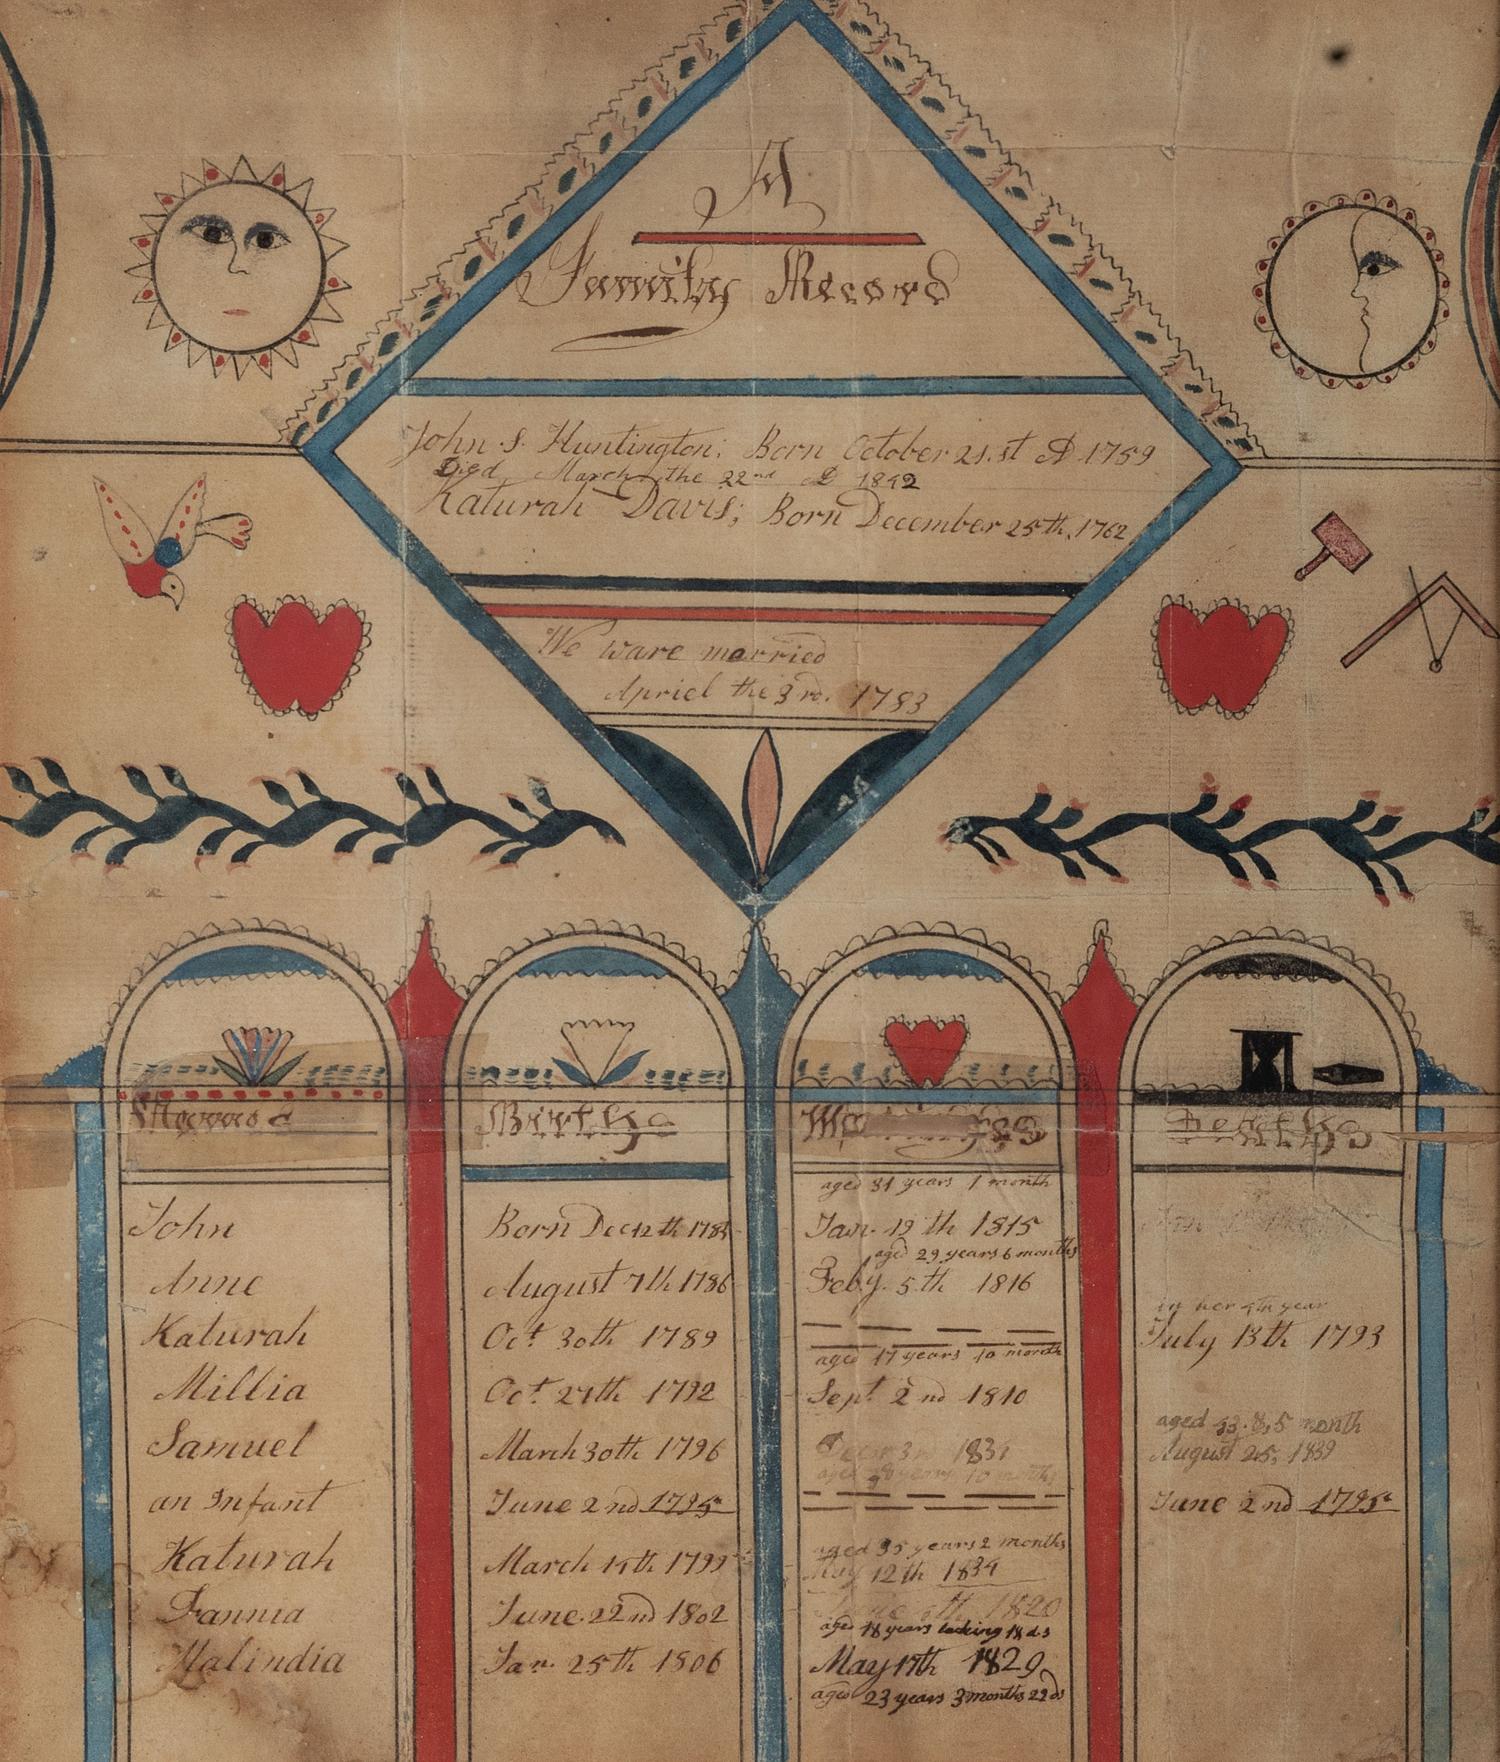 A
Family Record
John S. Huntington; Born October 21.st AD 1759
Died March the 22nd AD 1842
Katurah Davis; Born December 25th, 1762
We ware married
Apriel the 3rd. 1783
Births
Deaths
aged 31 years 1 month
John Born Dec 12th Jan. 19th 1815
aged 29 years 6 months
Anne August 7th 1786 Feby. 5th 1816
in her 4th year
Katurah Oct 30th 1789 July 13th 1793
aged 17 years 10 month
Millia Oct. 27th 1792 Sept. 2nd 1810
aged 43. month
Samuel March 30th 1796 3rd 1831 August 25, 1839
aged years 10 months
an Infant June 2nd 1795 June 2nd 1795
aged 35 years 2 months
Katurah March 14th 1799 May 12th 1834
Fannia June 22nd 1802 6th 1820
aged 18 years lacking 18 ds
Malindia Jan. 25th 1806 May 17th 1829
aged 23 years 3 months 22 ds